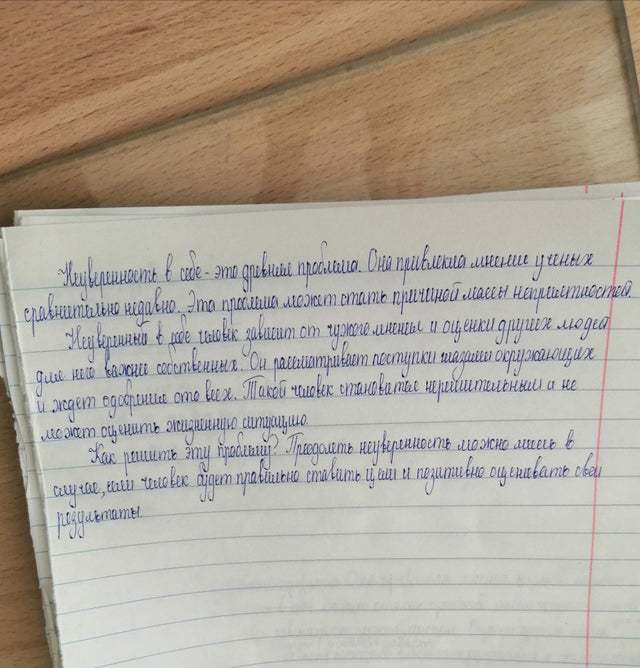 Неуверенность в себе - это древняя проблема. Она привлекла мнение ученых
сравнительно недавно. Эта проблема может стать причиной массы неприятностей.
Неуверенный в себе человек зависит от чужого мнения и оценки других людей
для него важнее собственных. Он рассматривает поступки глазами окружающих
и ждет одобрения ото всех. Такой человек становится нерешительным и не
может оценить жизненную ситуацию.
Как решить эту проблему? Преодолеть неуверенность можно лишь в
случае, если человек будет правильно ставить цели и позитивно оценивать свои
результаты.